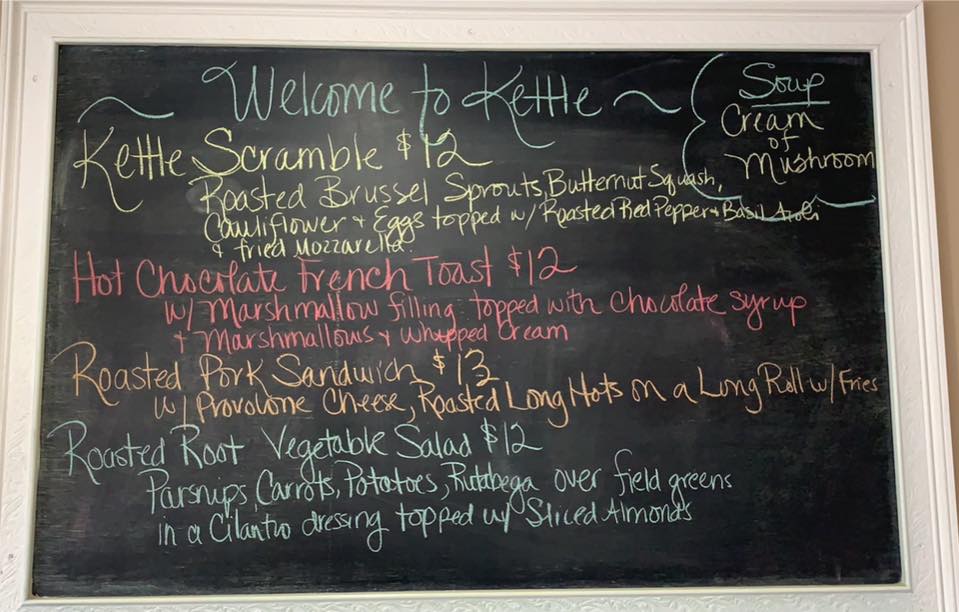 Welcome to Kettle
Soup
Cream
of
Mushroom
Kettle Scramble $12
Roasted Brussel Sprouts, Butternut Squash,
Cauliflower + Eggs topped w/ Roasted Red Pepper + Basil Aioli
+ fried Mozzarella
Hot Chocolate French Toast $12
w/ Marshmallow filling topped with chocolate syrup
+ Marshmallows + Whipped Cream
Roasted Pork Sandwich $13
w/ Provolone Cheese, Roasted Long Hots on a Long Roll w/ Fries
Roasted Root Vegetable Salad $12
Parsnips, Carrots, Potatoes, Rutabega over field greens
in a Cilantro dressing topped w/ Sliced Almonds